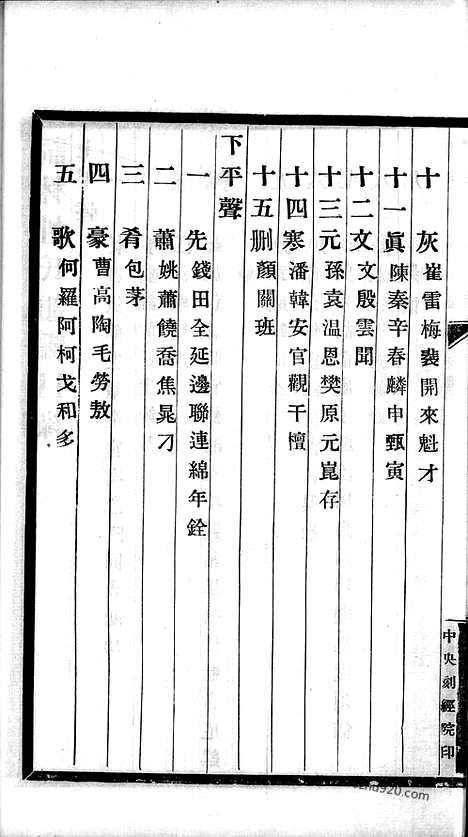 十　灰崔雷梅裴開來魁才
十一眞陳秦辛春麟申甄寅
十二文文殷雲聞
十三元孫袁温恩樊原元崑存
十四寒潘韓安官觀干檀
十五刪顏關班
下平聲
一　先錢田全延邊聯連綿年銓
二　蕭姚蕭饒喬焦晁刁
三　肴包茅
四　豪曹高陶毛勞敖
五　歌何羅阿柯戈和多
中央刻經院印